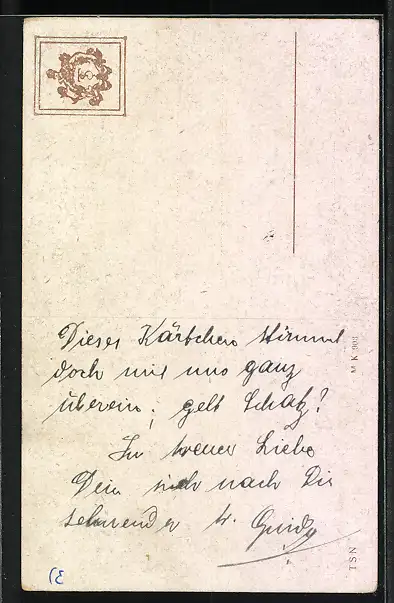 Dieses Kärtchen stimmt
doch mit uns ganz
überein, gelt Schatz?
In treuer Liebe
Dein sich nach Dir
sehnender tr. Guido
M K 901
TSN